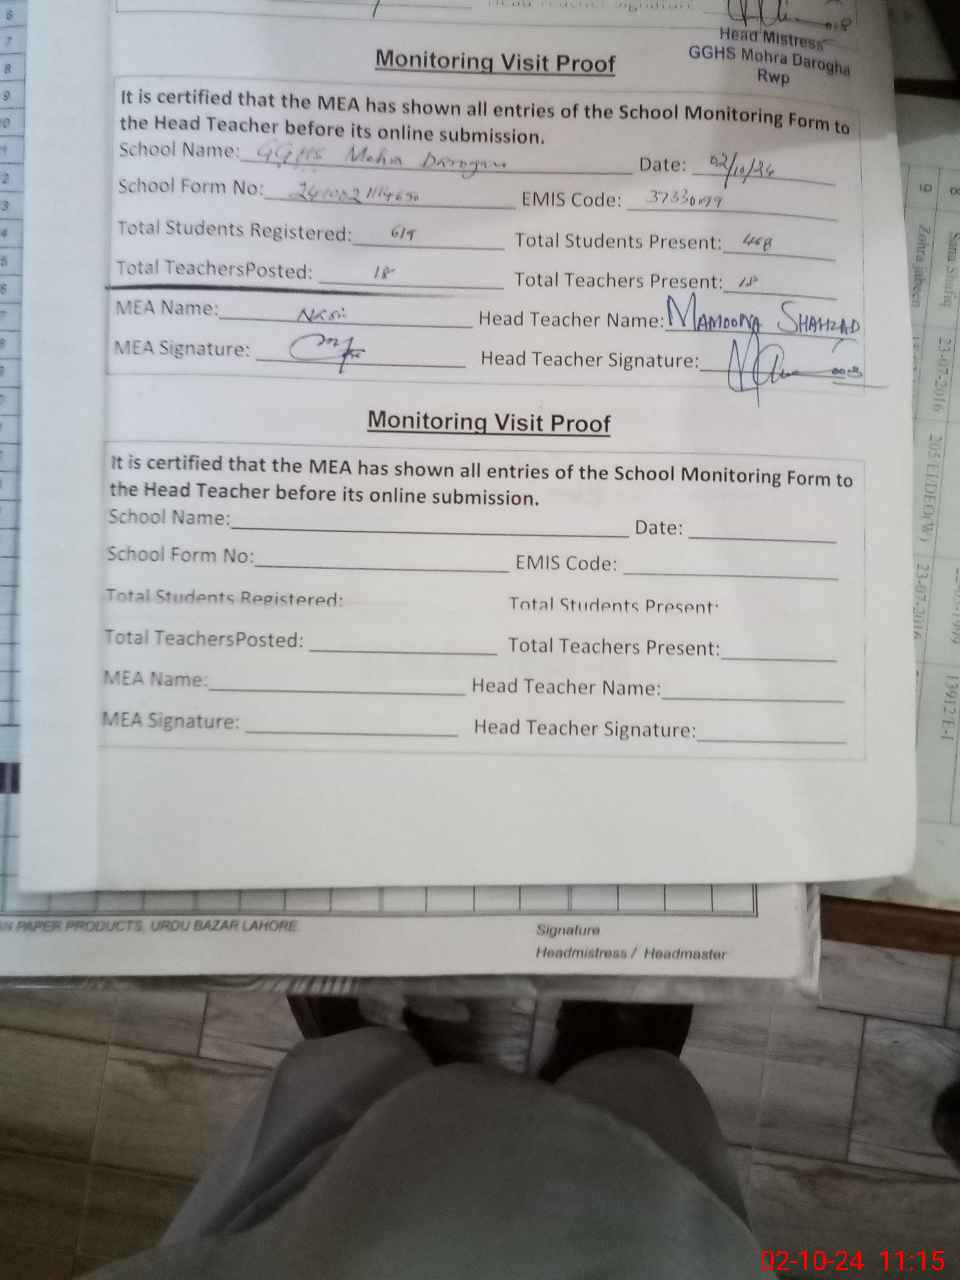 6
7
8
9
Head Mistress
GGHS Mohra Darogha
Rwp
Monitoring Visit Proof
It is certified that the MEA has shown all entries of the School Monitoring Form to
the Head Teacher before its online submission.
School Name: GGHS Mohra Darogha Date: 02/10/24
School Form No: EMIS Code:
Total Students Registered: Total Students Present: 468
Total TeachersPosted: 18 Total Teachers Present: 18
MEA Name: Head Teacher Name: MAMOONA SHAHZAD
MEA Signature: Head Teacher Signature:
Monitoring Visit Proof
It is certified that the MEA has shown all entries of the School Monitoring Form to
the Head Teacher before its online submission.
School Name: Date:
School Form No: EMIS Code:
Total Students Registered: Total Students Present:
Total TeachersPosted: Total Teachers Present:
MEA Name: Head Teacher Name:
MEA Signature: Head Teacher Signature:
PAPER PRODUCTS, URDU BAZAR LAHORE.
Signature
Headmistress / Headmaster
23-07-2016
23-07-2016
13912 E-I
02-10-24 11:15